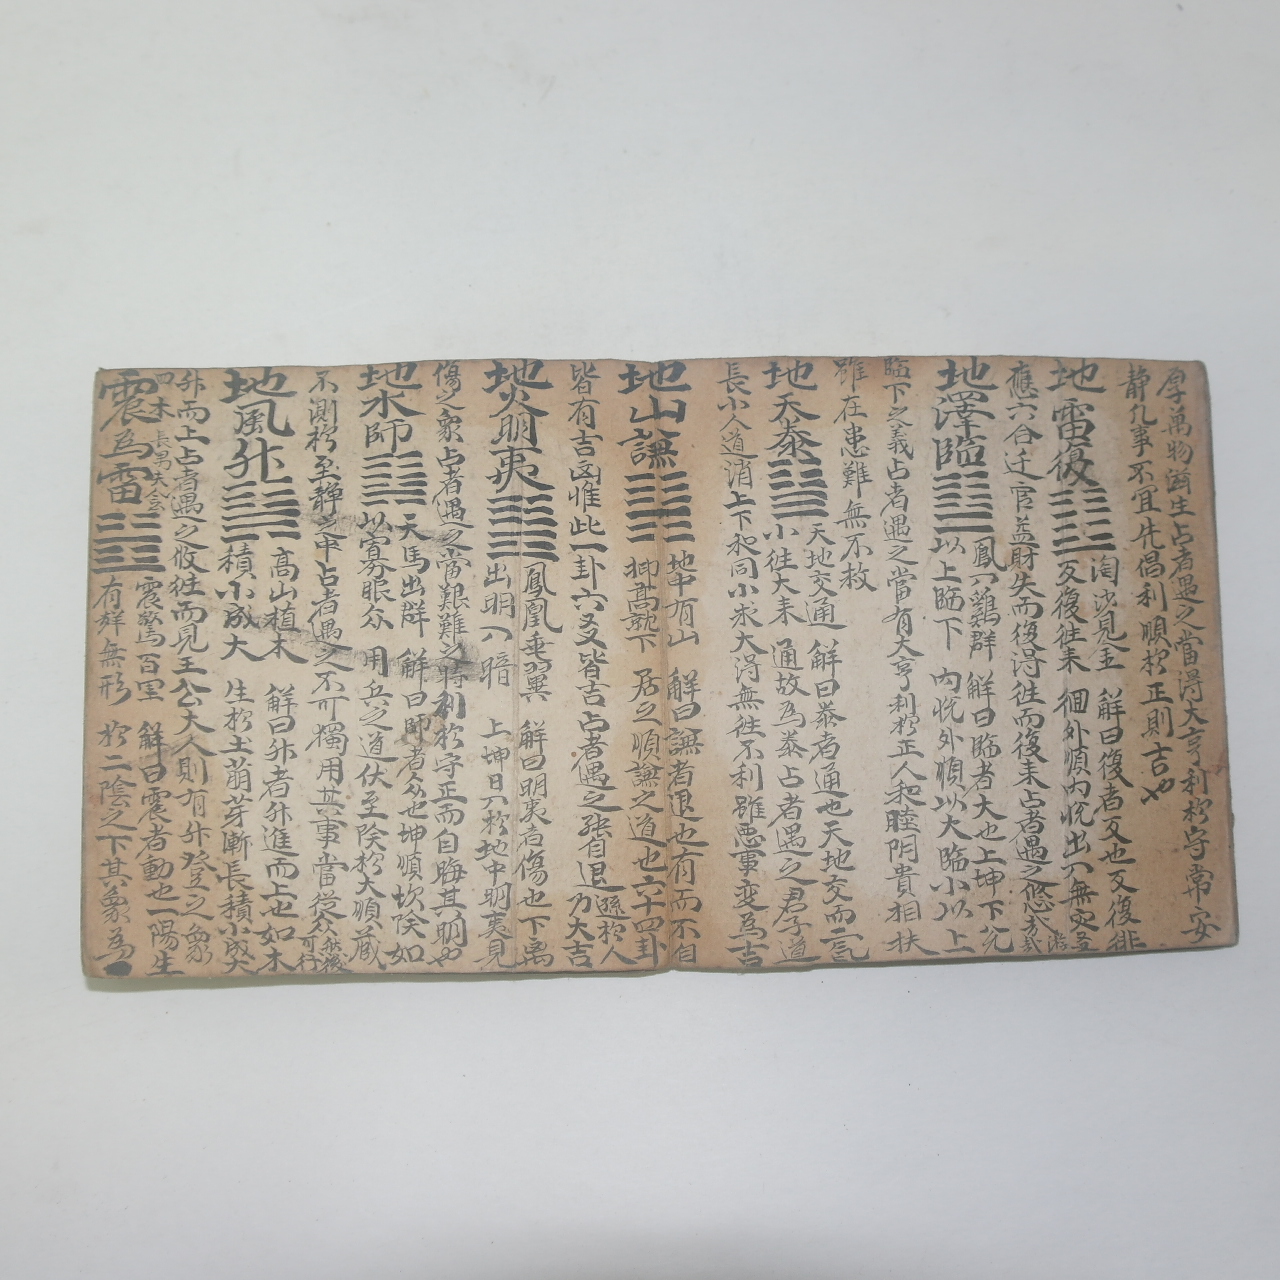 厚萬物滋生占者遇之當得大亨利於守常安
靜凡事不宜先倡利順於正則吉也
地雷復
淘沙見金
反復往來
解曰復者反也反復徘
徊外順内悅出入無災吾浩
應六合迁官益財失而復得往而復来占者遇之悠
地澤臨
鳳入鷄群
以上臨下
解曰臨者大也上坤下兌
内悅外順以大臨小以上
臨下之義占者遇之當有大亨利於正人和睦阴貴相扶
雖在患難無不救
地天泰
天地交通
小往大来
解曰泰者通也天地交而二氣
通故為泰占者遇之君子道
長小人道消上下和同小求大得無往不利雖悪事变為吉
地山謙
地中有山
仰高就下
解曰謙者退也有而不自
居之順謙之道也六十四卦
皆有吉凶惟此一卦六爻皆吉占者遇之強自退遜於人乃大吉
地火明夷
鳳凰垂翼
出明入暗
解曰明夷者傷也下离
上坤日入於地中明夷見
傷之象占者遇之當艱難之時利於守正而自晦其明也
地水師
天馬出群
以寡服众
解曰師者众也坤順坎険如
用兵之道伏至険於大順蔵
不測於至靜之中占者遇之不可獨用其事當從众然後可行
地風升
高山植木
積小成大
解曰升者升進而上也如木
生於土萠芽漸長積小成大
升而上占者遇之攸往而見王公大人則有升登之象
震為雷
四木
長男
震驚百里
有聲無形
解曰震者動也一陽生
於二陰之下其象為